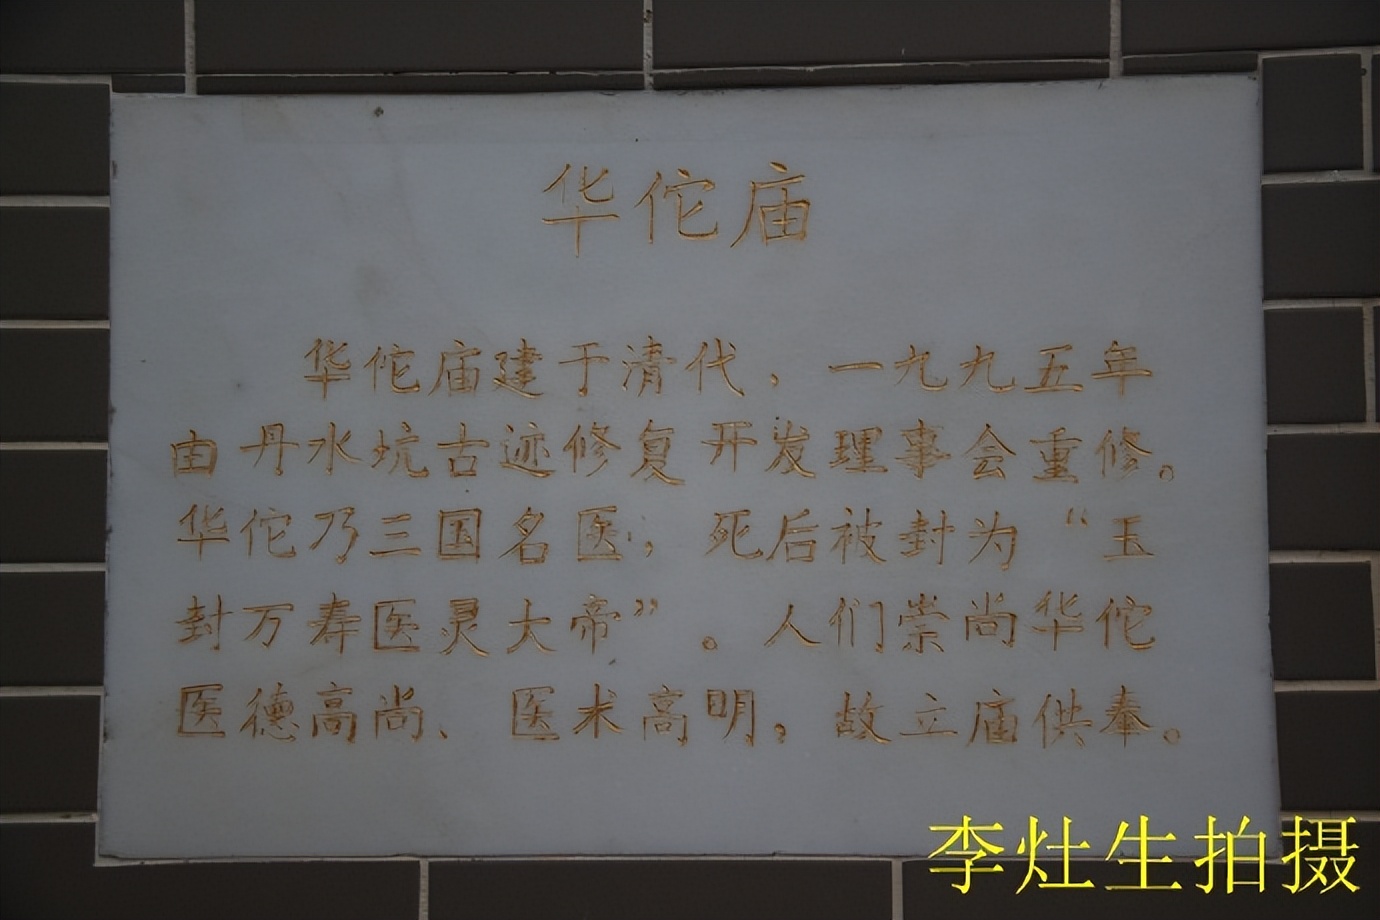 华佗庙
华佗庙建于清代，一九九五年
由丹水坑古迹修复开发理事会重修。
华佗乃三国名医，死后被封为“玉
封万寿医灵大帝”。人们崇尚华佗
医德高尚、医术高明，故立庙供奉。
李灶生拍摄